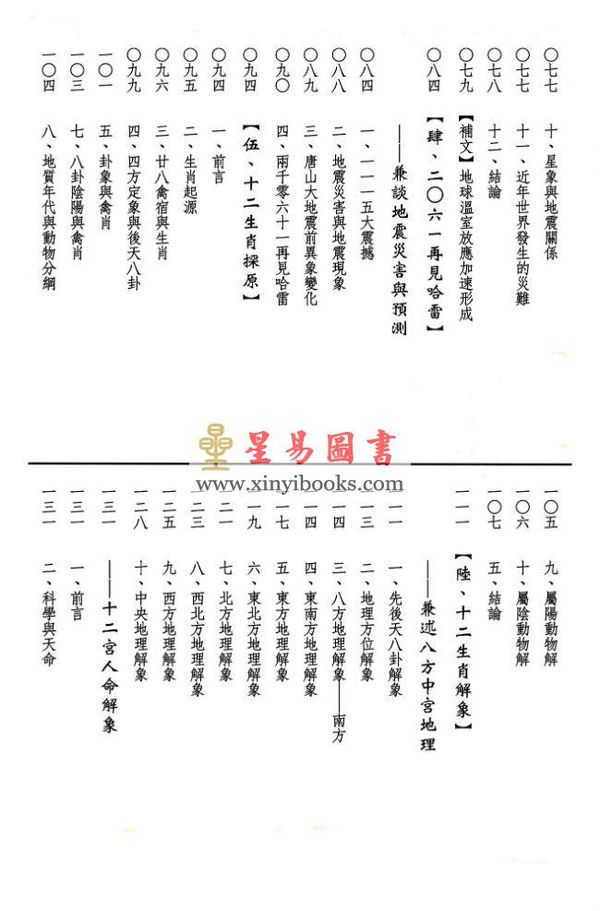 〇七七 十、星象與地震關係
〇七七 十一、近年世界發生的災難
〇七八 十二、結論
〇七九 【補文】地球溫室放應加速形成
〇八四 【肆、二〇六一再見哈雷】
——兼談地震災害與預測
〇八四 一、一一一五大震撼
〇八八 二、地震災害與地震現象
〇八九 三、唐山大地震前異象變化
〇九〇 四、兩千零六十一再見哈雷
〇九四 【伍、十二生肖探原】
〇九四 一、前言
〇九五 二、生肖起源
〇九六 三、廿八禽宿與生肖
〇九九 四、四方定象與後天八卦
一〇一 五、卦象與禽肖
一〇三 七、八卦陰陽與禽肖
一〇四 八、地質年代與動物分綱
星易圖書
www.xinyibooks.com
一〇五 九、屬陽動物解
一〇六 十、屬陰動物解
一〇七 五、結論
一一一 【陸、十二生肖解象】
——兼述八方中宮地理
一一一 一、先後天八卦解象
一一三 二、地理方位解象
一一四 三、八方地理解象——南方
一一四 四、東南方地理解象
一一七 五、東方地理解象
一一九 六、東北方地理解象
一二一 七、北方地理解象
一二三 八、西北方地理解象
一二五 九、西方地理解象
一二八 十、中央地理解象
一三一 ——十二宮人命解象
一三一 一、前言
一三一 二、科學與天命